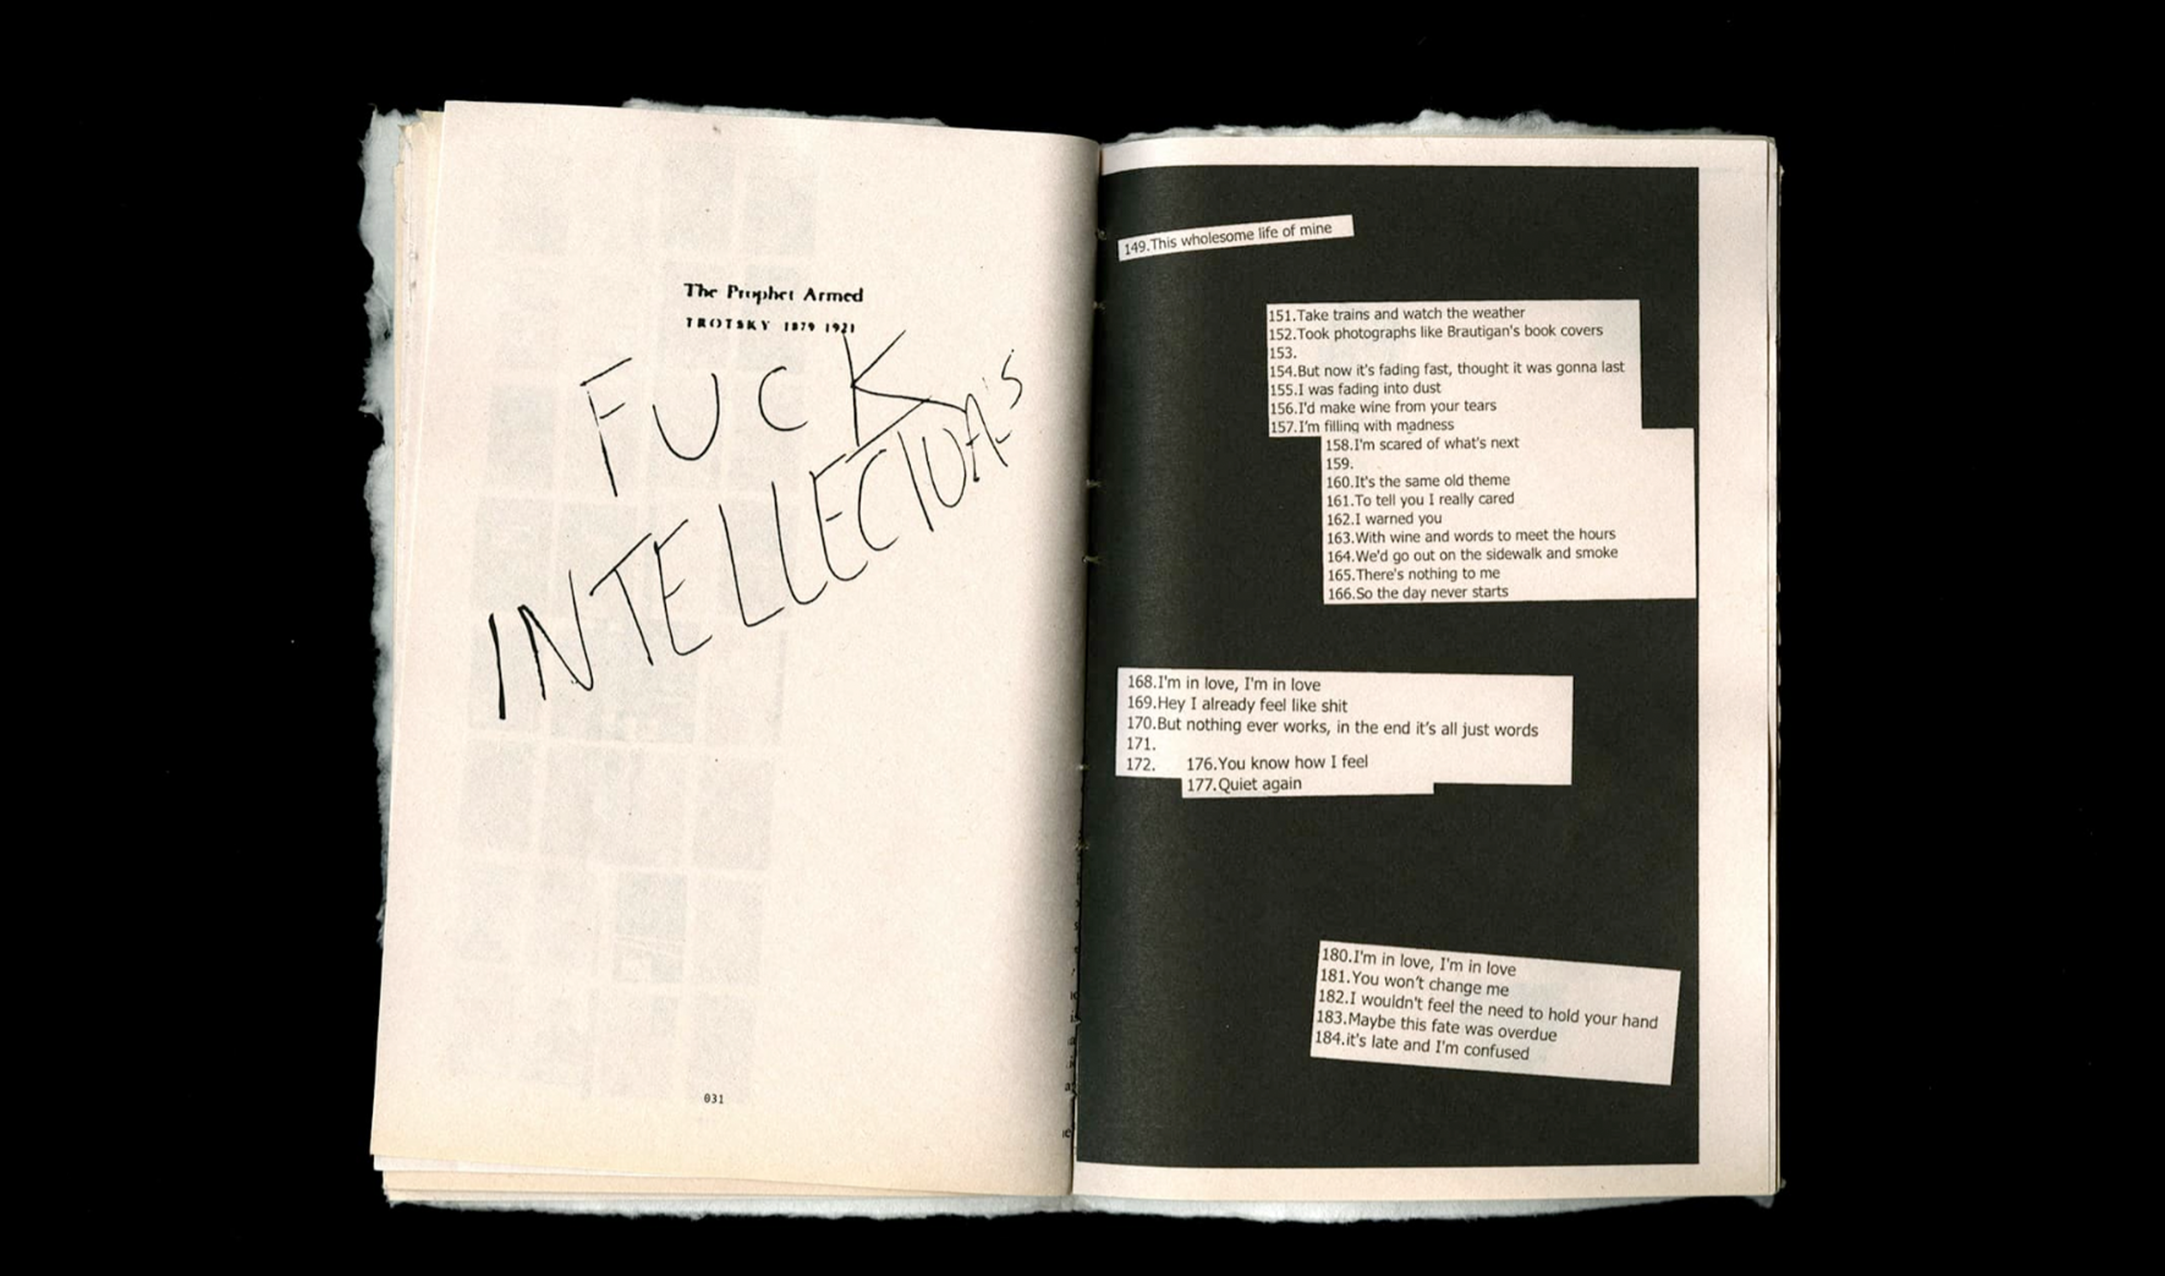 The Prophet Armed
TROTSKY 1879 1921
FUCK
INTELLECTUAL'S
031
149.This wholesome life of mine
151.Take trains and watch the weather
152.Took photographs like Brautigan's book covers
153.
154.But now it's fading fast, thought it was gonna last
155.I was fading into dust
156.I'd make wine from your tears
157.I'm filling with madness
158.I'm scared of what's next
159.
160.It's the same old theme
161.To tell you I really cared
162.I warned you
163.With wine and words to meet the hours
164.We'd go out on the sidewalk and smoke
165.There's nothing to me
166.So the day never starts
168.I'm in love, I'm in love
169.Hey I already feel like shit
170.But nothing ever works, in the end it's all just words
171.
172. 176.You know how I feel
177.Quiet again
180.I'm in love, I'm in love
181.You won't change me
182.I wouldn't feel the need to hold your hand
183.Maybe this fate was overdue
184.it's late and I'm confused